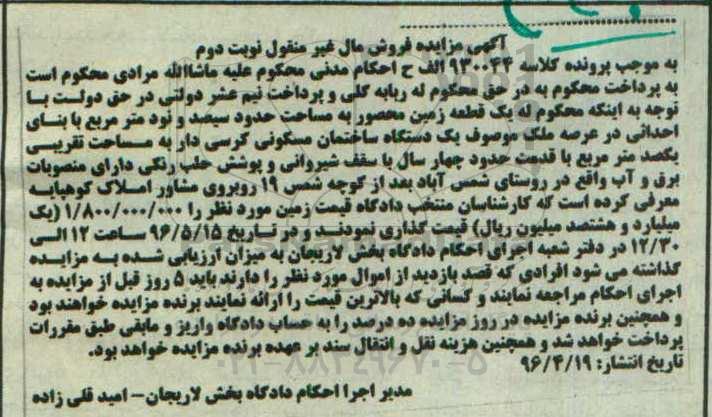 آگهی مزایده فروش مال غیر منقول نوبت دوم
به موجب پرونده کلاسه ۹۳۰۰۴۴ الف ح احکام مدنی محکوم علیه ماشاالله مرادی محکوم است
به پرداخت محکوم به در حق محکوم له ربابه گلی و پرداخت نیم عشر دولتی در حق دولت با
توجه به اینکه محکوم له یک قطعه زمین محصور به مساحت حدود سیصد و نود متر مربع با بنای
احداثی در عرصه ملک موصوف یک دستگاه ساختمان مسکونی کرسی دار به مساحت تقریبی
یکصد متر مربع با قدمت حدود چهار سال با سقف شیروانی و پوشش حلب رنگی دارای منصوبات
برق و آب واقع در روستای شمس آباد بعد از کوچه شمس ۱۹ روبروی مشاور املاک کوهپایه
معرفی کرده است که کارشناسان منتخب دادگاه قیمت زمین مورد نظر را ۱/۸۰۰/۰۰۰/۰۰۰ (یک
میلیارد و هشتصد میلیون ریال) قیمت گذاری نمودند و در تاریخ ۹۶/۵/۱۵ ساعت ۱۲ الی
۱۲/۳۰ در دفتر شعبه اجرای احکام دادگاه بخش لاریجان به میزان ارزیابی شده به مزایده
گذاشته می شود افرادی که قصد بازدید از اموال مورد نظر را دارند باید ۵ روز قبل از مزایده به
اجرای احکام مراجعه نمایند و کسانی که بالاترین قیمت را ارائه نمایند برنده مزایده خواهند بود
و همچنین برنده مزایده در روز مزایده ده درصد را به حساب دادگاه واریز و مابقی طبق مقررات
پرداخت خواهد شد و همچنین هزینه نقل و انتقال سند بر عهده برنده مزایده خواهد بود.
تاریخ انتشار: ۹۶/۴/۱۹
۰۲۱-۸۸۳۴۹۶۷۰-۵
مدیر اجرا احکام دادگاه بخش لاریجان- امید قلی زاده